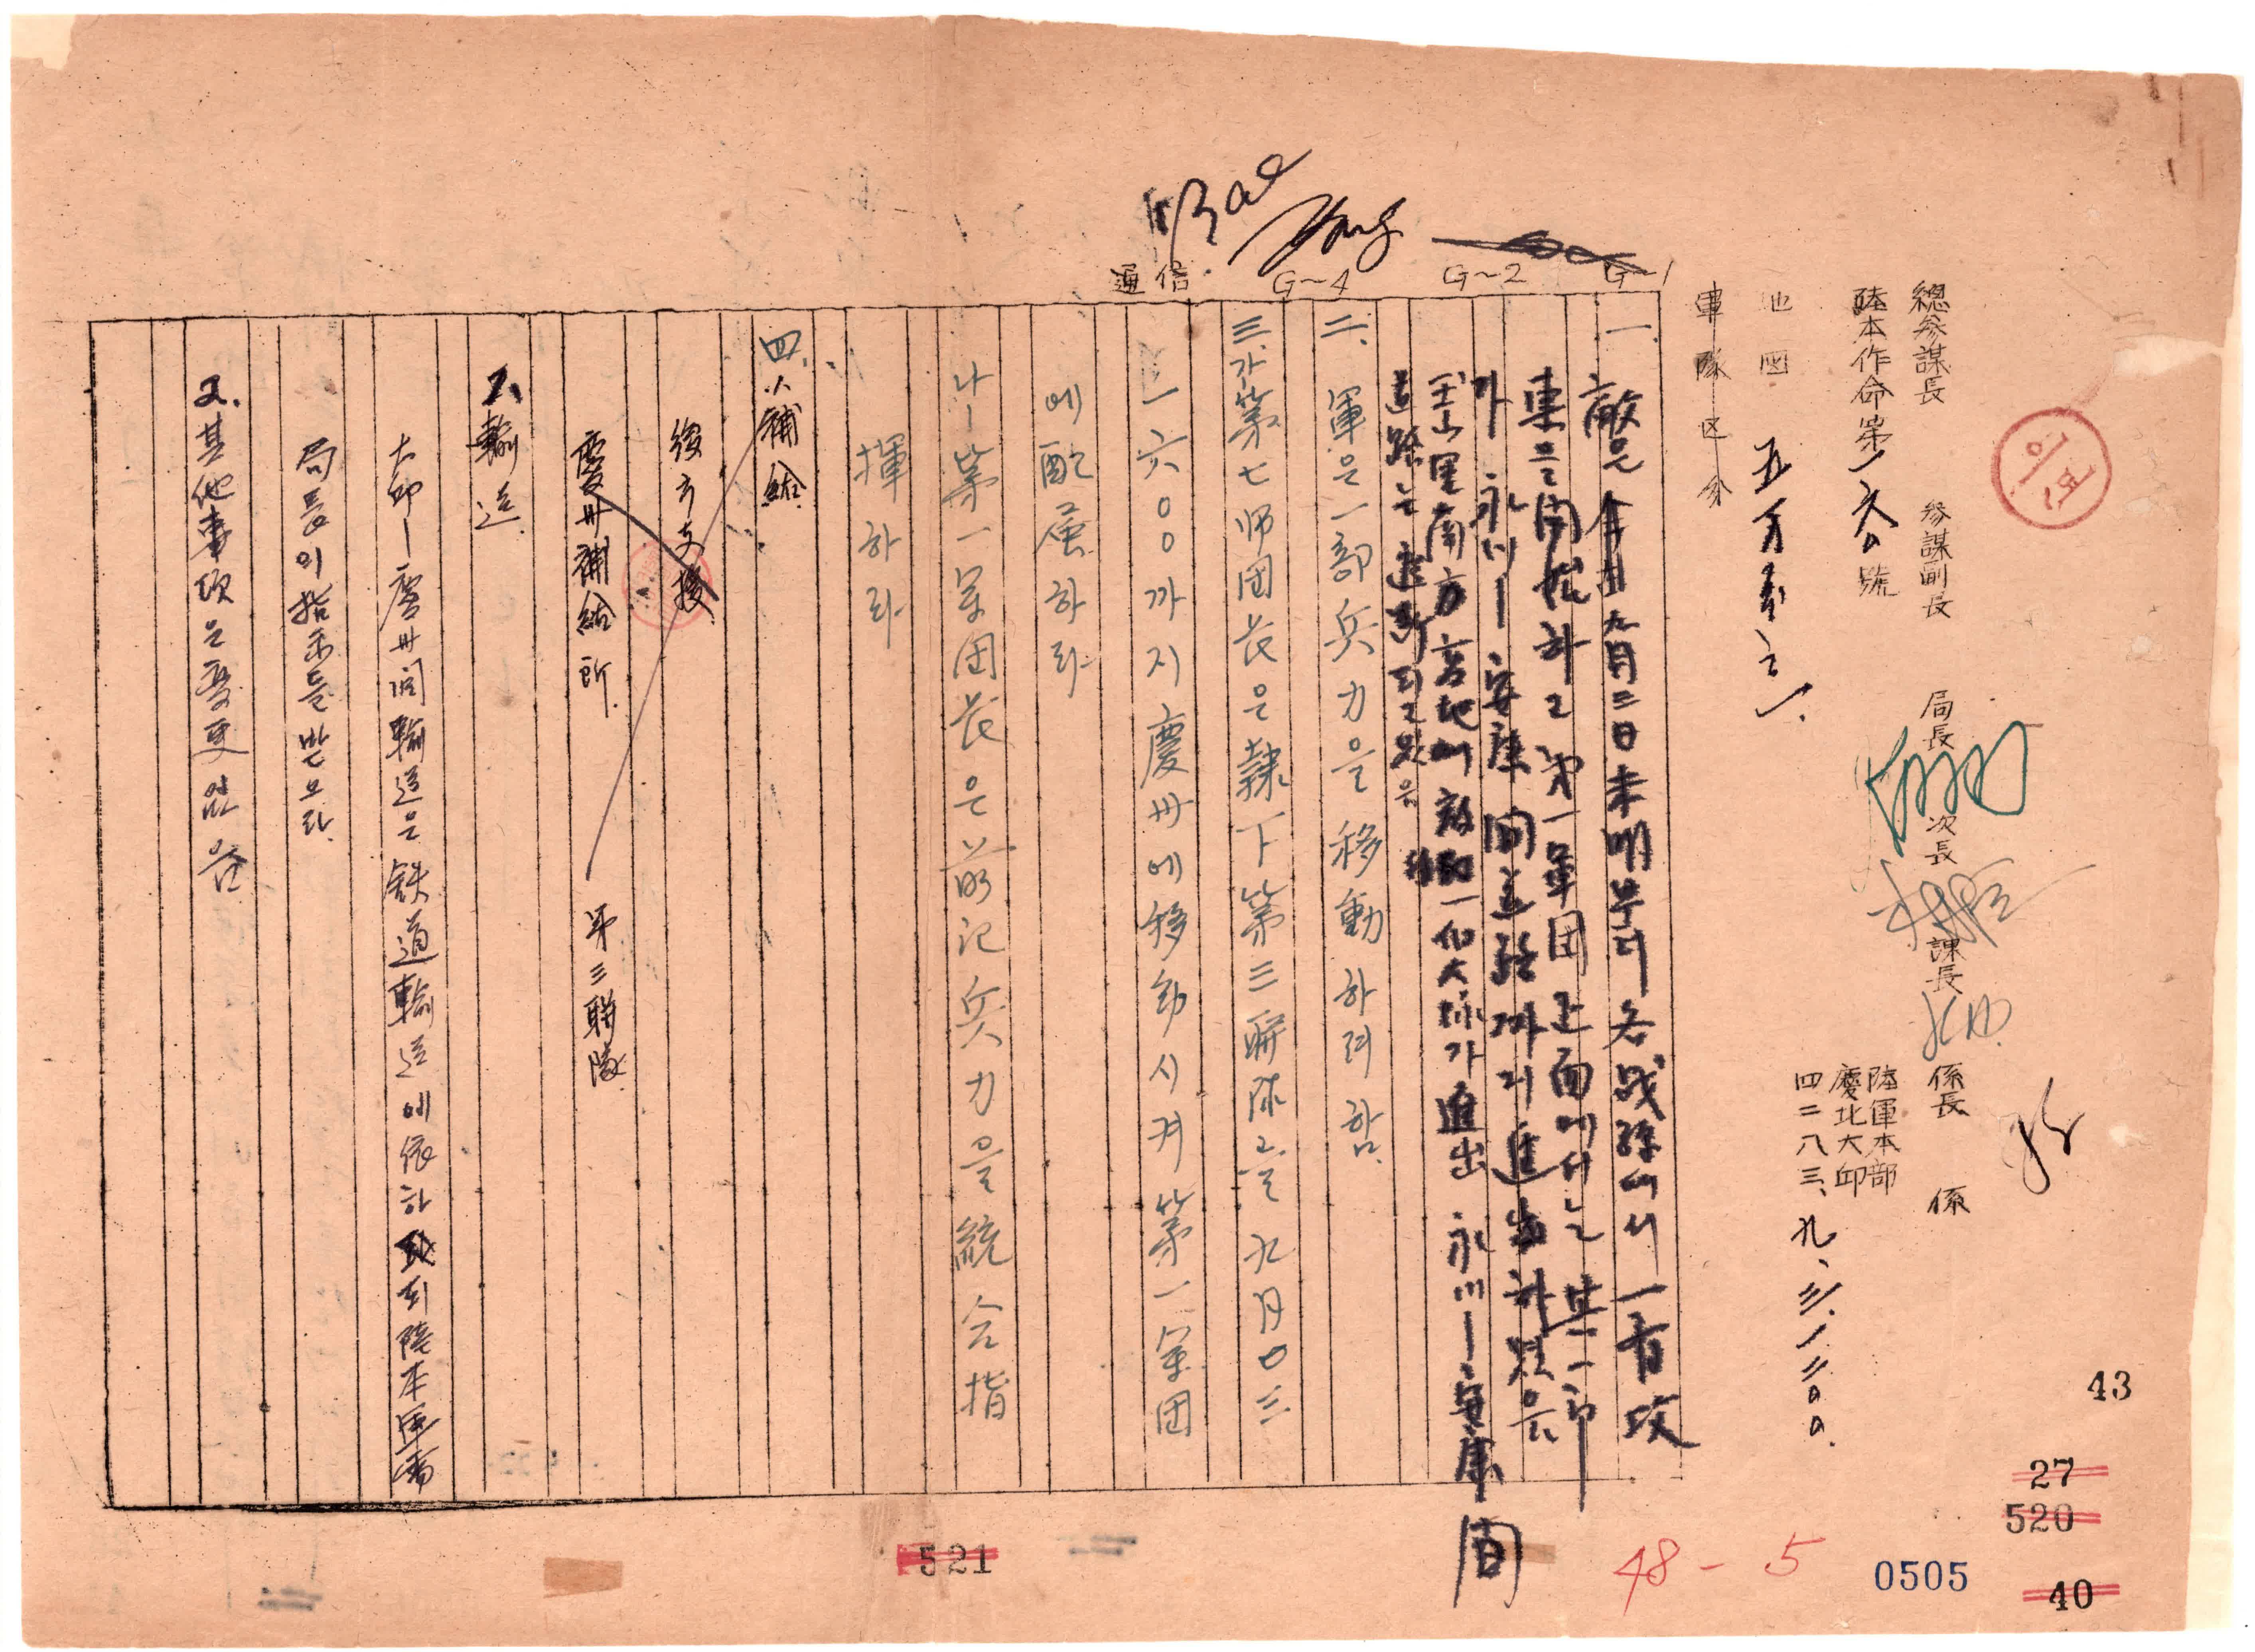 總參謀長 參謀副長 局長 次長 課長 係長 係
陸本作命第一六〇號
陸軍本部
慶北大邱
四二八三、九、三、一三〇〇.
地図 五万分之一.
軍隊区分
G~1
G~2
G~4
通信
一. 敵은 今日 九月三日 未明부터 各戰線에서 一齊攻
東을 開始하고 第一軍団 正面에서는 其一部
가 永川—安康間 道路까지 進出하였음
玉山里 南方高地에 敵 一個大隊가 進出 永川—安康間
道路는 遮断되고 있음
二. 軍은 一部兵力을 移動하려 함.
三. 가— 第七师団長은 隷下 第三联隊을 九月〇三
一六〇〇까지 慶州에 移動시켜 第一军団
에 配属하라
나— 第一军団長은 前記兵力을 統合指
揮하라
四. 1. 補給
後方支援
慶州補給所. 第三聯隊
2. 輸送
大邱—慶州间輸送은 鉄道輸送에 依하되 陸本運輸
局長의 指示를 받으라.
2. 其他事項은 変更없음
43
27
520
521
48-5
0505
40